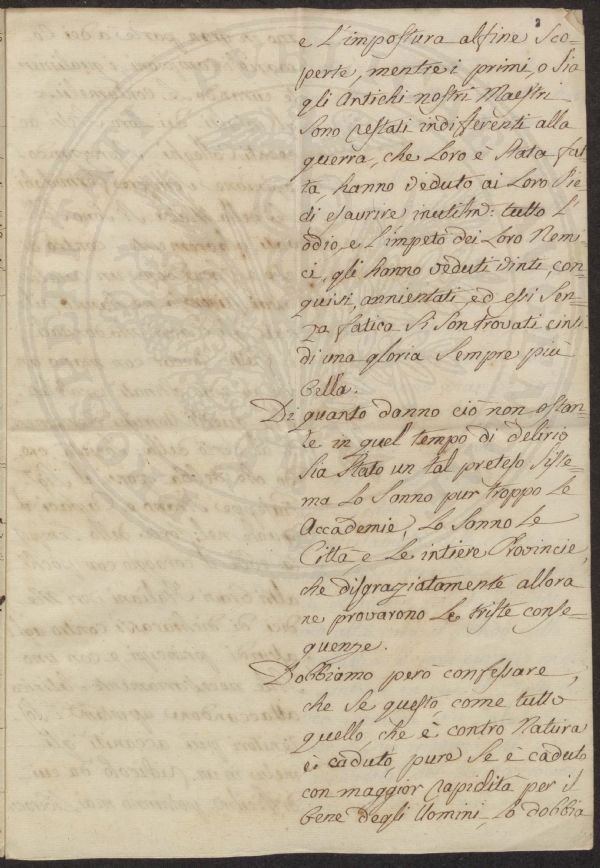 2
e L'impostura alfine sco=
perte, mentre i primi, o sia
gli Antichi nostri Maestri
sono restati indifferenti alla
guerra, che Loro è stata fat=
ta, hanno veduto ai Loro Pie=
di esaurire inutilm: tutto L'
odio, e L'impeto dei Loro Nemi=
ci, gli hanno veduti vinti, con=
quisi, annientati, ed essi sen=
za fatica si son trovati cinti
di una gloria sempre più
bella.
Di quanto danno ciò non ostan=
te in quel tempo di delirio
sia stato un tal preteso siste=
ma Lo sanno pur troppo Le
Accademie, Lo sanno Le
Città e Le intiere Provincie,
che disgraziatamente allora
ne provarono Le triste conse=
guenze.
Dobbiamo però confessare,
che se questo, come tutto
quello, che è contro Natura
è caduto, pure se è caduto
con maggior rapidità per il
bene degli Uomini, Lo dobbia